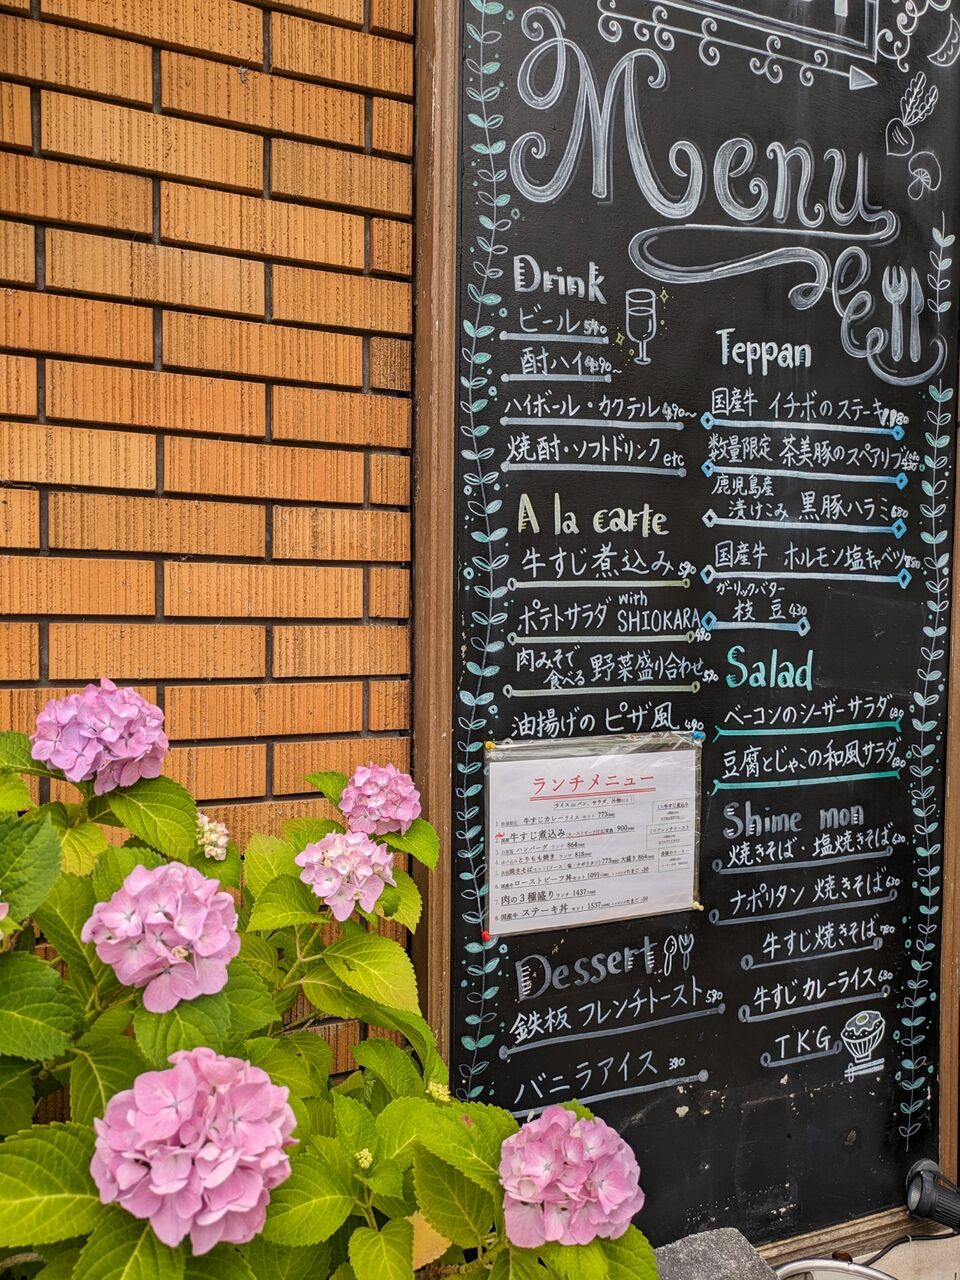 Menu
Drink
ビール 590
酎ハイ 490~
ハイボール・カクテル 490~
焼酎・ソフトドリンク etc
A la carte
牛すじ煮込み 590
ポテトサラダ with SHIOKARA 490
肉みそで
食べる 野菜盛り合わせ 590
油揚げの ピザ風 490
ランチメニュー
ライス or パン、サラダ、汁物付き!
牛すじカレーライス セット 773
牛すじ煮込み 900
ハンバーグ ランチ 864
とりもも焼き ランチ 818
焼きそば 773 大盛り 864
ローストビーフ丼 セット 1091
肉の3種盛り ランチ 1437
国産牛 ステーキ丼 セット 1537
Dessert
鉄板 フレンチトースト 590
バニラアイス 390
Teppan
国産牛 イチボのステーキ 1,180
数量限定 茶美豚のスペアリブ
鹿児島産
漬けこみ 黒豚ハラミ 680
国産牛 ホルモン塩キャベツ
ガーリックバター
枝豆 430
Salad
ベーコンのシーザーサラダ
豆腐とじゃこの和風サラダ
Shime mon
焼きそば・塩焼きそば 630
ナポリタン 焼きそば 630
牛すじ焼きそば 780
牛すじカレーライス 680
TKG